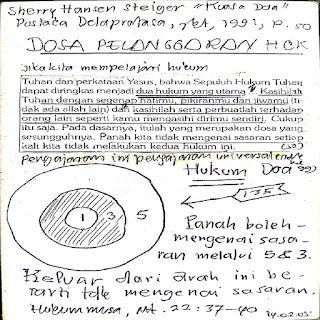 Sherry Hansen Steiger "Kuasa Doa"
Pustaca Delapratasa, Jkt, 1992, p. 50
DOSA PELANGGARAN HCK
Jika kita mempelajari hukum
Tuhan dan perkataan Yesus, bahwa Sepuluh Hukum Tuhan
dapat diringkas menjadi dua hukum yang utama "Kasihilah
Tuhan dengan segenap hatimu, pikiranmu dan jiwamu (ti-
dak ada allah lain) dan kasihilah serta perbuatlah terhadap
orang lain seperti kamu mengasihi dirimu sendiri. Cukup
itu saja. Pada dasarnya, itulah yang merupakan dosa yang
sesungguhnya. Panah kita tidak mengenai sasaran setiap
kali kita tidak melakukan kedua hukum ini. (50)
pengajaran ini pengajaran universal
Hukum Doa
1 3 5
135
Panah boleh
mengenai sasa-
ran melalui 5&3.
Keluar dari arah ini be-
rarti tdk mengenai sasaran.
Hukum musa, Mt. 22:37-40
14.02.05